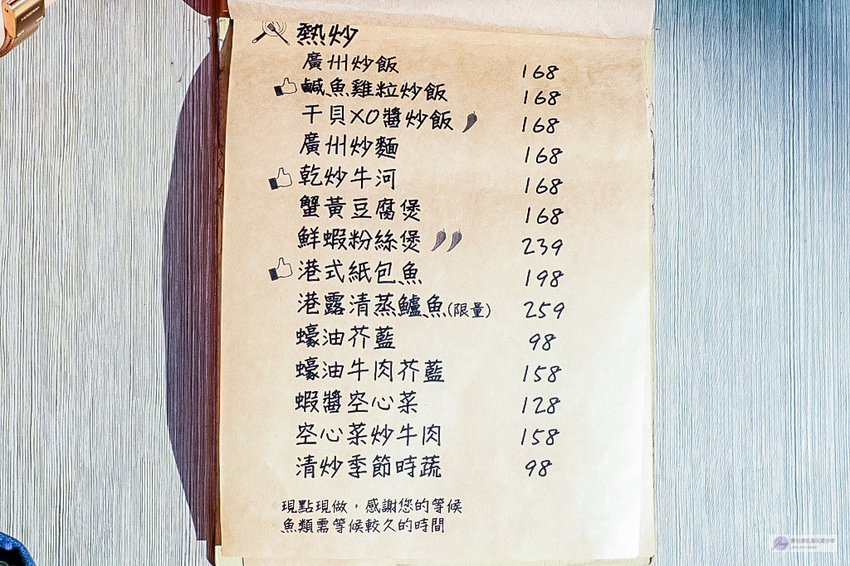 熱炒
廣州炒飯 168
鹹魚雞粒炒飯 168
干貝XO醬炒飯 168
廣州炒麵 168
乾炒牛河 168
蟹黃豆腐煲 168
鮮蝦粉絲煲 239
港式紙包魚 198
港露清蒸鱸魚(限量) 259
蠔油芥藍 98
蠔油牛肉芥藍 158
蝦醬空心菜 128
空心菜炒牛肉 158
清炒季節時蔬 98
現點現做，感謝您的等候
魚類需等候較久的時間